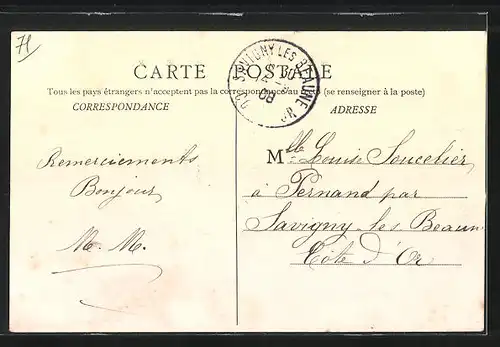 71
CARTE POSTALE
Tous les pays étrangers n'acceptent pas la correspondance au recto (se renseigner à la poste)
CORRESPONDANCE
ADRESSE
SAVIGNY LES BEAUNE
08
Remerciements
Bonjour
M. M.
Mlle Louise Soucelier
à Pernand par
Savigny-les Beaun
Côte d'Or